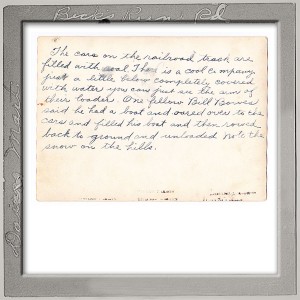 The cars on the railroad track are
filled with coal. There is a coal company
just a little below completely covered
with water you can just see the arm of
their loader. One fellow Bill Bowes
said he had a boat and oared over to the
cars and filled his boat and then rowed
back to ground and unloaded. Note the
snow on the hills.